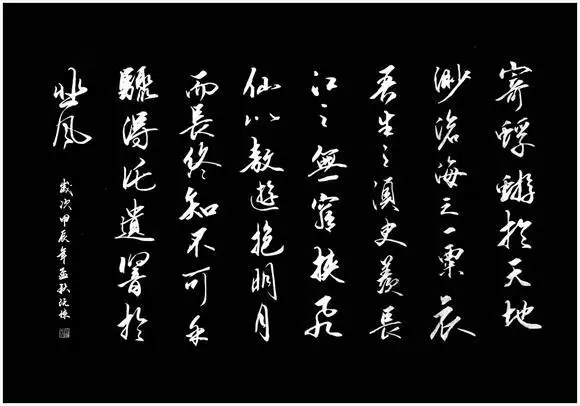 寄蜉蝣於天地
渺滄海之一粟哀
吾生之須臾羨長
江之無窮挾飛
仙以遨遊抱明月
而長終知不可乎
驟得託遺響於
悲風
歲次甲辰年孟秋